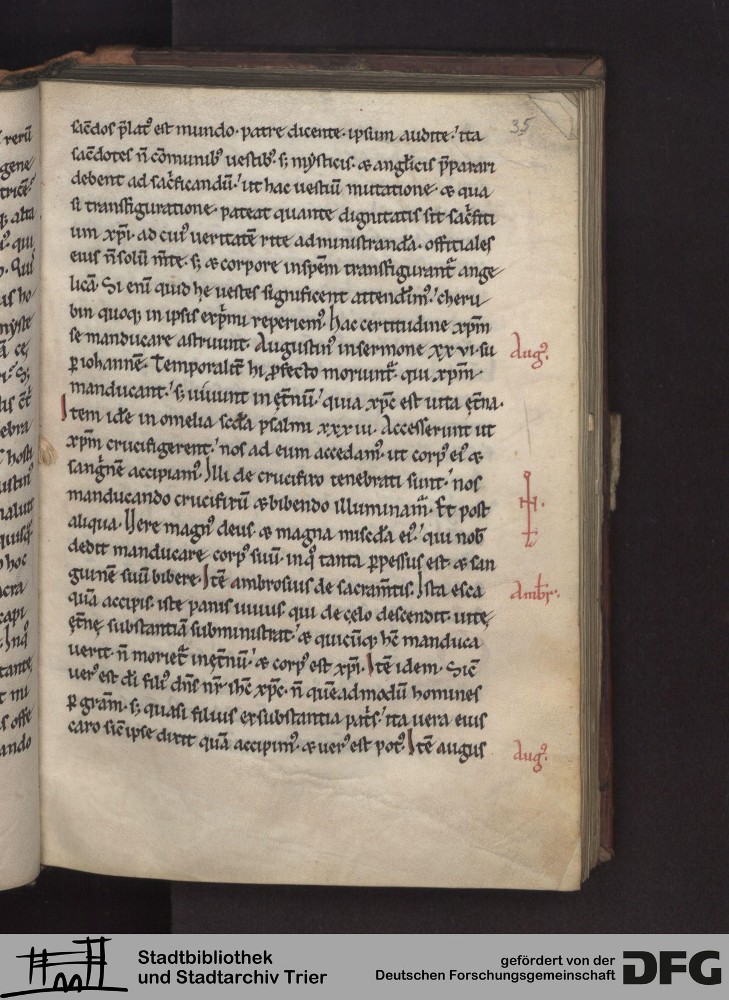 35
sac̄dos p̄lat᷒ est mundo· patre dicente· ipsum audite·' ita
sac̄dotes n̄ cōmunib᷒ uestib᷒· s; mysticis· & anglicis p̄parari
debent ad sac̄ficandū·' ut hac uestiū mutatione· & qua
si transfiguratione· pateat quante dignitatis sit sac̄fiti
um xp̄i· ad cui᷒ ueritatē rite administrandā· offitiales
eius n̄ solū m̄te· s; & corpore in spēm transfigurant᷑ ange
licā· Si enī quid hę uestes significent attendim᷒·' cheru
bin quoq; in ipsis exp̄mi reperiem᷒· Hac certitudine xp̄m
se manducare astruunt· Augustin᷒ in sermone xx vi· su
ꝑ iohannē· Temporalit̄ hi ꝓfecto moriunt᷑· qui xp̄m
manducant·' s; uiuunt in ęt̄nū·' quia xp̄c est uita ęt̄na·
Item idē in omelia sc̄da psalmi xxx iii· Accesserunt ut
xp̄m crucifigerent·' nos ad eum accedam᷒· ut corp᷒ ei᷒ &
sangnē accipiam᷒· Illi de crucifixo tenebrati sunt·' nos
manducando crucifixū & bibendo illuminam᷑· Et post
aliqua· Uere magn᷒ deus· & magna miscd̄a ei᷒·' qui nob̄
dedit manducare corp᷒ suū· in q᷒ tanta ꝑpessus est & san
guinē suū bibere· Itē ambrosius de sacram̄tis· Ista esca
quā accipis· iste panis uiuus qui de cęlo descendit· uitę
ęt̄nę substantiā subministrat·' & quicūq; hc̄ manduca
uerit· n̄ moriet᷑ in ęt̄nū·' & corp᷒ est xp̄i· Itē idem· Sic̄
uer᷒ est dī fili᷒ dn̄s nr̄ ihc̄ xp̄c· n̄ quēadmodū homines
ꝑ grām· s; quasi filius ex substantia patris·' ita uera eius
caro sic̄ ipse dixit quā accipim᷒· & uer᷒ est pot᷒· Itē augus
Aug᷒·
Ambr̄·
Aug᷒·
Stadtbibliothek
und Stadtarchiv Trier
gefördert von der
Deutschen Forschungsgemeinschaft
DFG